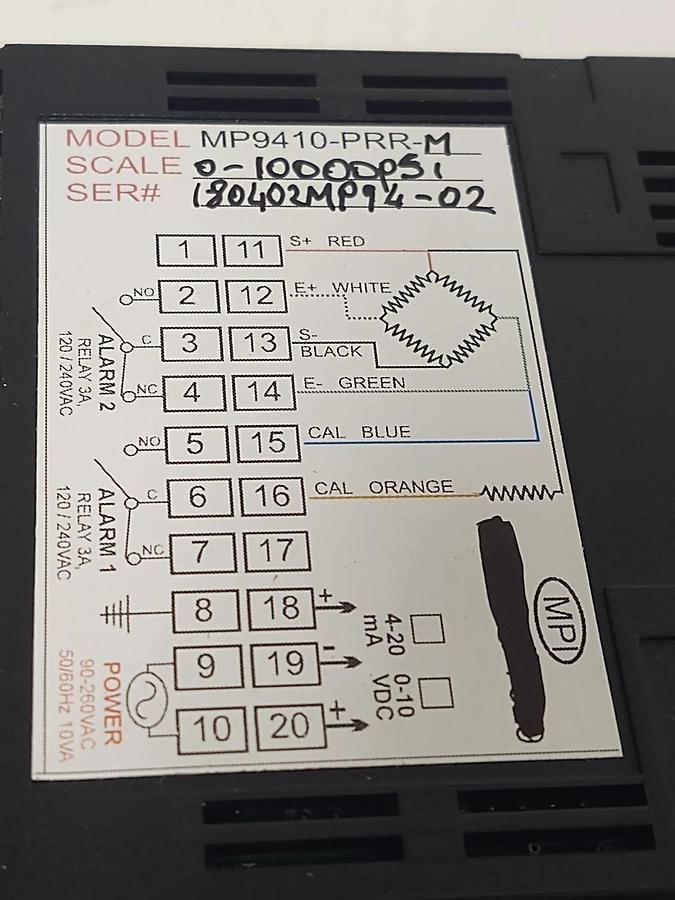 MODEL MP9410-PRR-M
SCALE 0-10000PSI
SER# 180402MP94-02
1 11 S+ RED
NO 2 12 E+ WHITE
C 3 13 S- BLACK
NC 4 14 E- GREEN
ALARM 2
RELAY 3A,
120 / 240VAC
NO 5 15 CAL BLUE
C 6 16 CAL ORANGE
NC 7 17
ALARM 1
RELAY 3A,
120 / 240VAC
8 18 +
9 19 -
10 20 +
4-20
mA
0-10
VDC
POWER
90-260VAC
50/60Hz 10VA
MPI